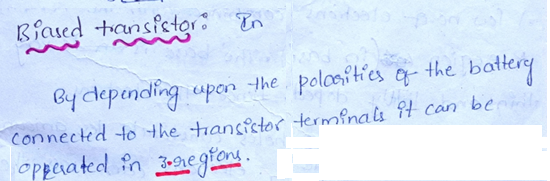 Biased transistor: In
By depending upon the polarities of the battery
connected to the transistor terminals it can be
opperated in 3-regions.